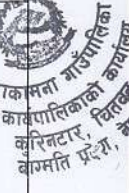 गाउँपालिका
कार्यपालिकाको कार्यालय
कुरिनटार, चितवन
बाग्मती प्रदेश, ने